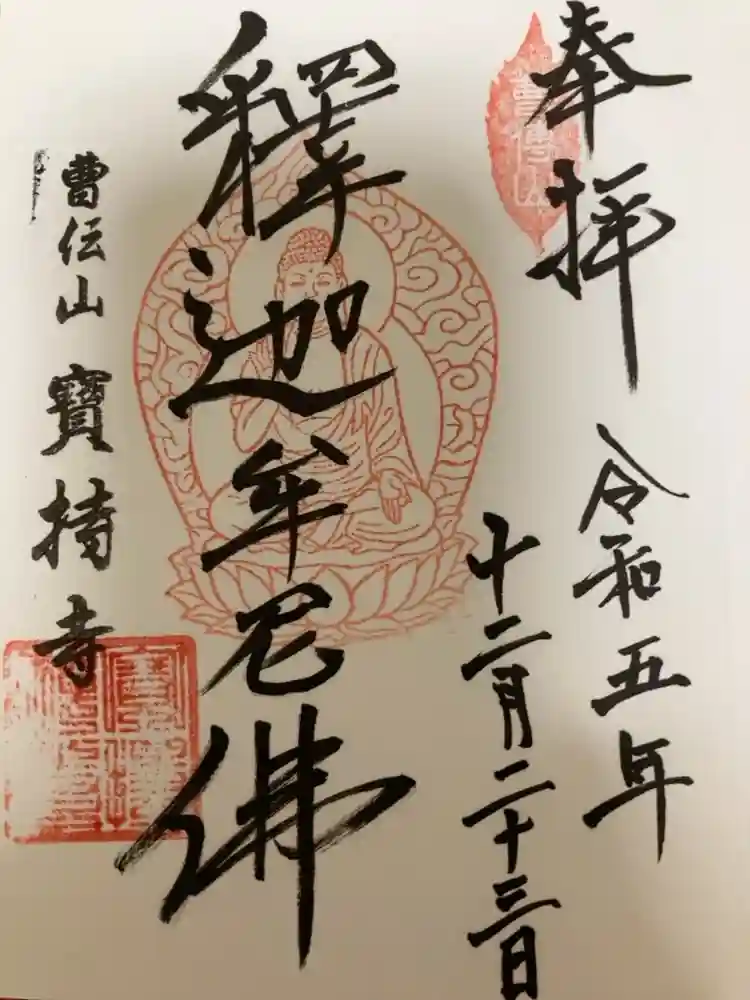 奉拝
令和五年
十二月二十三日
釋迦牟尼佛
曹伝山 寶持寺
曹傳山